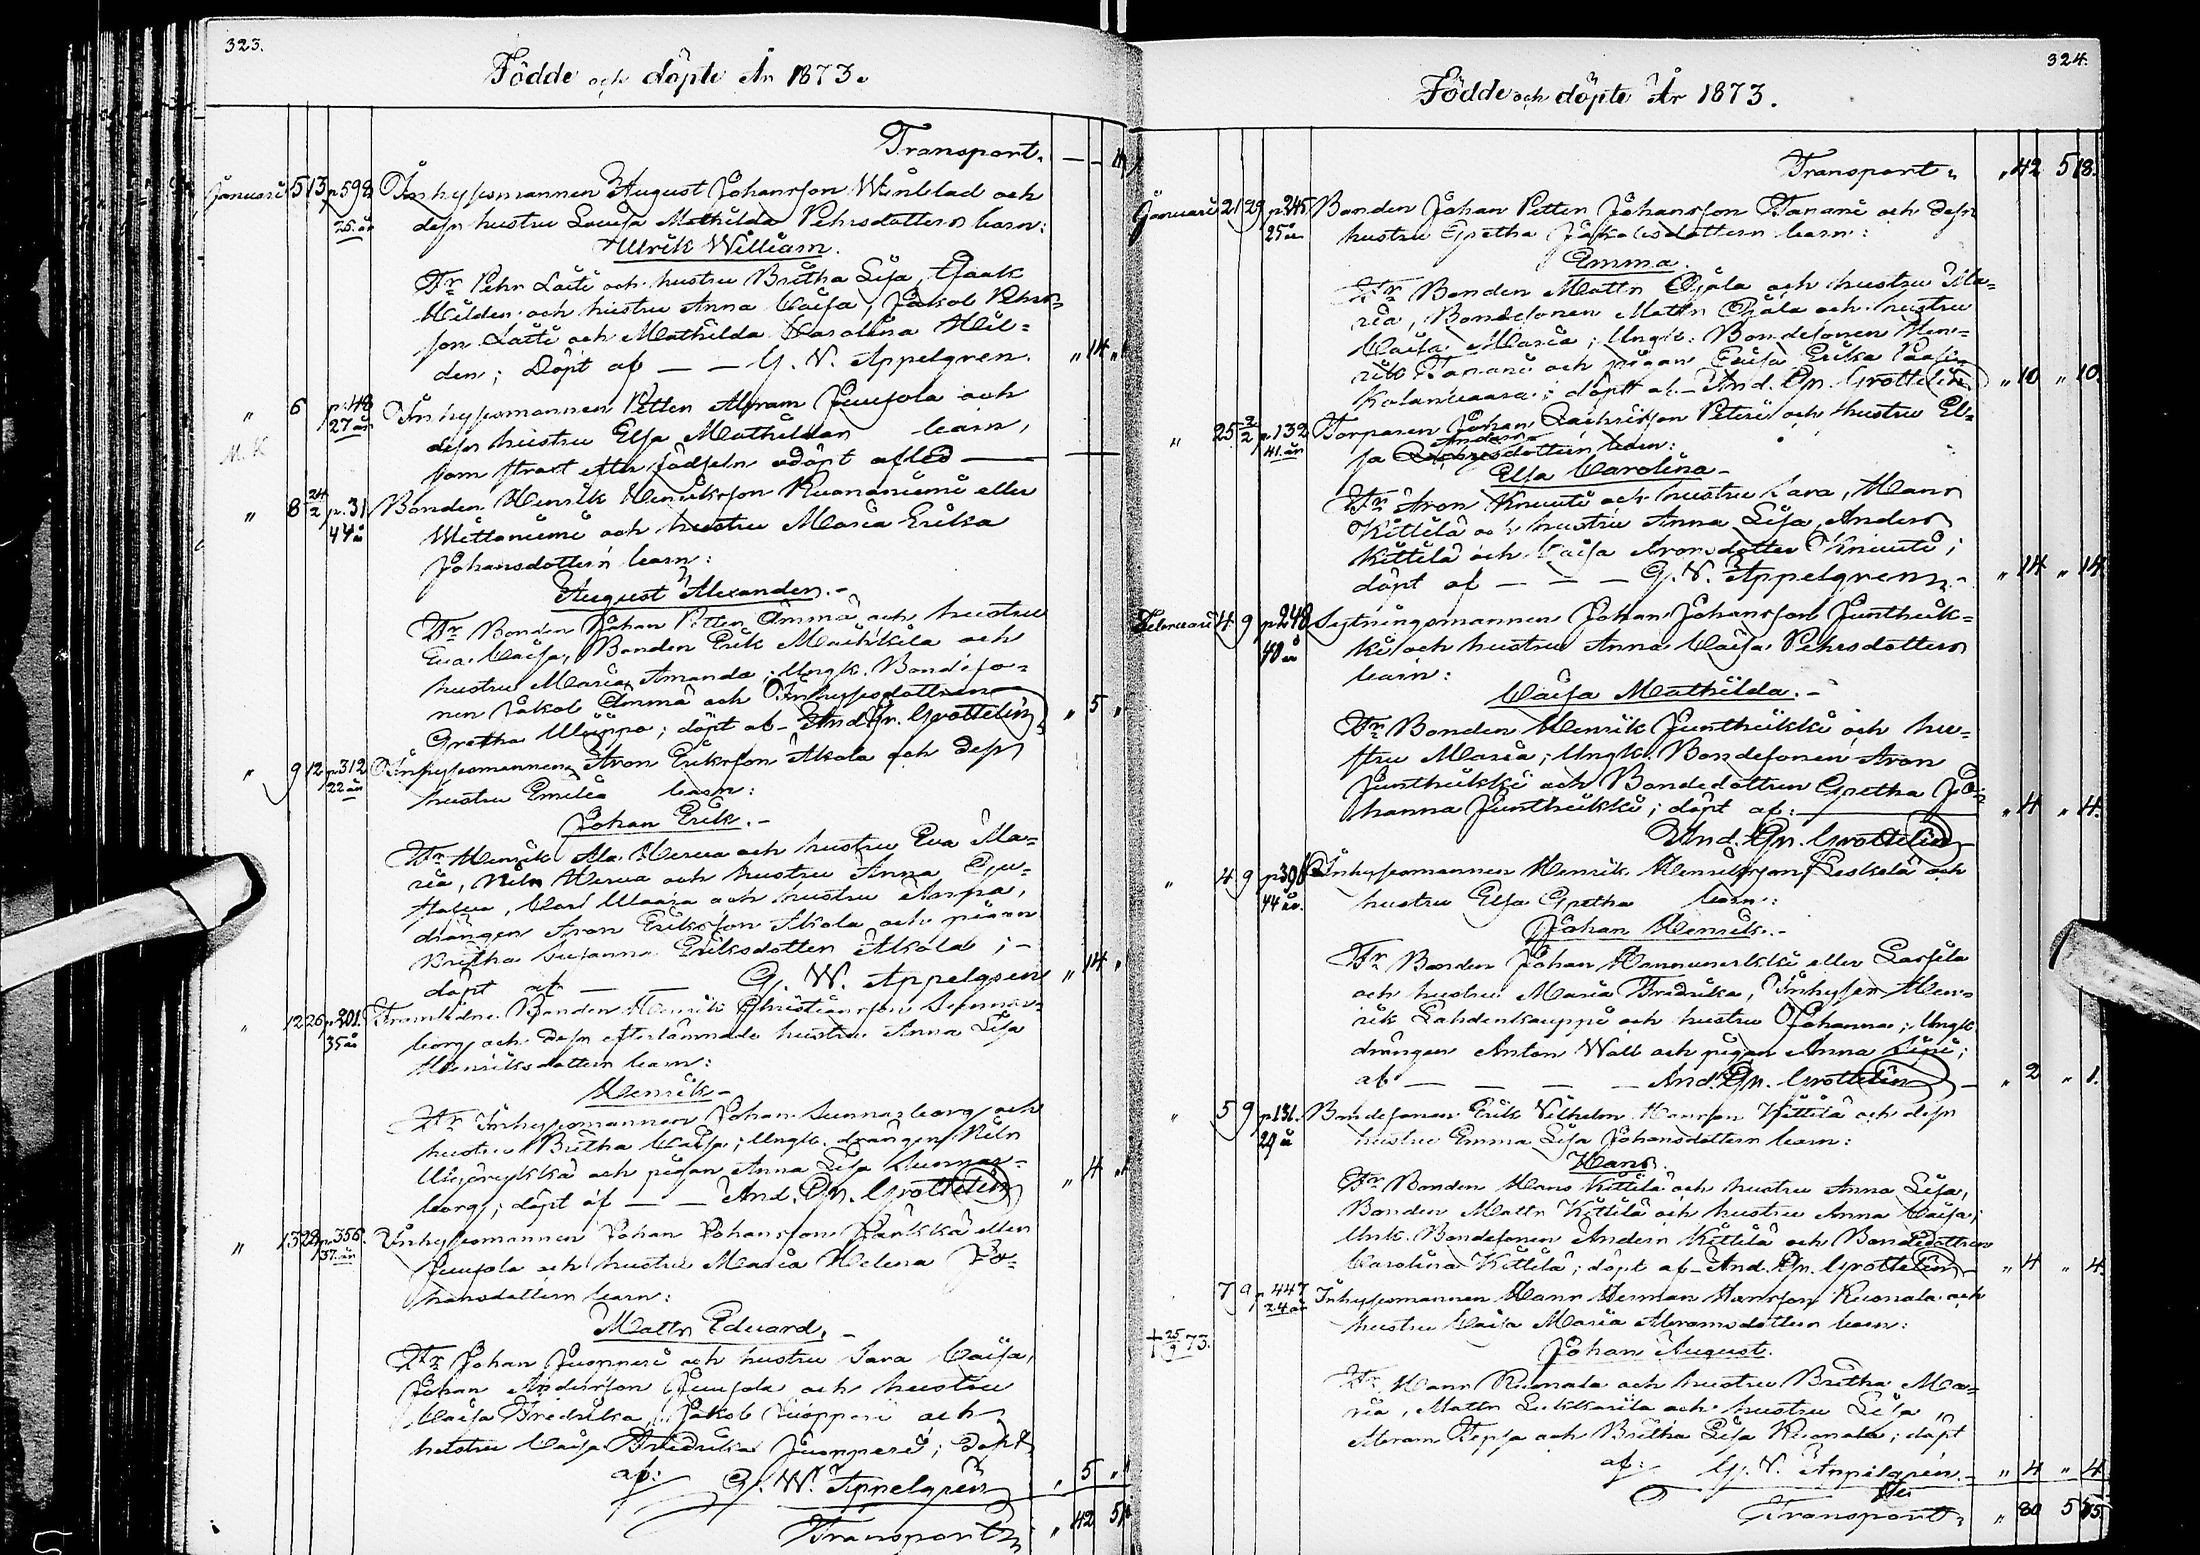 323.
Födde och döpte År 1873.
Transport. — —
Januari 5 13 p. 598 Inhysomannen August Johansson Winblad och
25 år dess hustru Lovisa Mathilda Pehrsdotters barn:
Ulrik William.
Fr. Pehr Laiti och hustru Britha Lisa, Isaak
Hilden och hustru Anna Caisa, Jakob Pehrs-
son Laiti och Mathilda Karolina Hil-
den; Döpt af — — G. W. Appelgren. " 14 "
" 6 p. 48 Inhysomannen Petter Abram Juusola och
27 år dess hustru Elsa Mathildas barn,
M. K. som strax efter födseln odöpt afled —
" 8 24/2 p. 31 Bonden Henrik Henriksson Kuonaniemi eller
44 år Mettaniemi och hustru Maria Erika
Johansdotters barn:
August Alexander. -
Fr. Bonden Johan Petter Ämmä och hustru
Eva Caisa, Bonden Erik Markkila och
hustru Maria Amanda; Ungk. Bondeso-
nen Jakob Ämmä och Inhysesdottren
Gretha ; döpt af - And. Gr. Grottelin " 5 "
" 9 12 p. 312 Inhysomannen Aron Eriksson Akola och dess
22 år hustru Emilia barn:
Johan Erik. -
Fr. Henrik Ala Herua och hustru Eva Ma-
ria, Nils Herua och hustru Anna Gu-
stafva, Carl och hustru Anna,
drängen Aron Eriksson Akola och pigan
Britha Susanna Eriksdotter Akola; -
döpt af — — G. W. Appelgren " 14 "
" 12 26 p. 201. Framlidne Bonden Henrik Christiansson Sunnar-
35 år borg och dess efterlämnade hustru Anna Lisa
Henriksdotters barn:
Henrik -
Fr. Inhysomannen Johan Sunnarborg och
hustru Britha Caisa; Ungk. drängen Nils
och pigan Anna Lisa Sunnar-
borg; döpt af — — And. Gr. Grottelin " 4 "
" 13 22 p. 356. Inhysomannen Johan Johansson Pränkkä eller
37 år Juusola och hustru Maria Helena Jo-
hansdotters barn:
Matts Eduard. -
Fr. Johan Juopperi och hustru Sara Caisa,
Johan Andersson Juusola och hustru
Caisa Fredrika, Jakob Juopperi och
hustru Caisa Fredrika Juopperi; Döpt
af: G. W. Appelgren " 5 "
Transport " 42 5
324.
Födde och döpte År 1873.
Transport " 42 5 18.
Januari 21 29 p. 245 Bonden Johan Petter Johansson Tanani och dess
25 år hustru Gretha Jakobsdotters barn:
Emma.
Fr. Bonden Matts Ojala och hustru Ma-
ria, Bondesonen Matts Ojala och hustru
Caisa Maria; Ungk: Bondesonen Hen-
rik Tanani och pigan Caisa Erika
Kolamvaara; döpt af - And. Gr. Grottelin " 10 " 10.
" 25 2/2 p. 132 Torparen Johan Zachrisson Peteri och hustru El-
41 år sa Andersdotters barn:
Elsa Carolina -
Fr. Aron Knuuti och hustru Sara, Hans
Kittilä och hustru Anna Lisa, Anders
Kittilä och Caisa Aronsdotter Knuuti;
döpt af — — — G. W. Appelgren. - " 14 " 14.
Februari 4 9 p. 248 Sytningsmannen Johan Johansson Junthuk-
40 år ki och hustru Anna Caisa Pehrsdotters
barn:
Caisa Mathilda. -
Fr. Bonden Henrik Junthukki och hu-
stru Maria; Ungk. Bondesonen Aron
Junthukki och Bondedottren Gretha Jo-
hanna Junthukki; döpt af: — " 4 " 4.
And. Gr. Grottelin
" 4 9 p. 398 Inhysomannen Henrik Henriksson Leskelä och
44 år. hustru Elsa Gretha barn:
Johan Henrik. -
Fr. Bonden Johan Hannunerkki eller Lassila
och hustru Maria Fredrika, Inhyses Hen-
rik Lahdenkauppi och hustru Johanna; Ungk
drängen Anton Wall och pigan Anna ;
af — — — — And. Gr. Grottelin " 2 " 1.
" 5 9 p. 131. Bondesonen Erik Vilhelm Hansson Kittilä och dess
29 år hustru Emma Lisa Johansdotters barn:
Hans.
Fr. Bonden Hans Kittilä och hustru Anna Lisa,
Bonden Matts Kittilä och hustru Anna Caisa;
Unk. Bondesonen Anders Kittilä och Bondedottren
Carolina Kittilä; döpt af - And. Gr. Grottelin " 4 " 4.
7 9 p. 447 Inhysomannen Hans Herman Hansson Kuonala och
24 år hustru Caisa Maria Abramsdotters barn:
† 25/9 73. Johan August.
Fr. Hans Kuonala och hustru Britha Ma-
ria, Matts Lukkarila och hustru Lisa,
Abram Tepsa och Britha Lisa Kuonala; döpt
af: G. W. Appelgren. - " 4 " 4
Transport " 80 5 55.